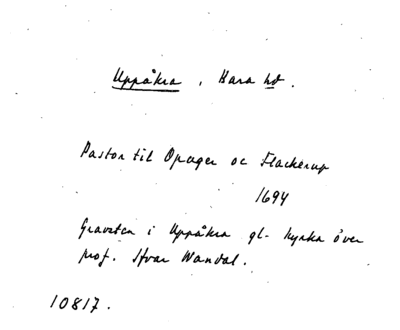 Uppåkra, Bara hd.
Pastor til Opager oc Flackerup
1694
Gravsten i Uppåkra gl. kyrka över
prof. Ifvar Wandal.
10817.